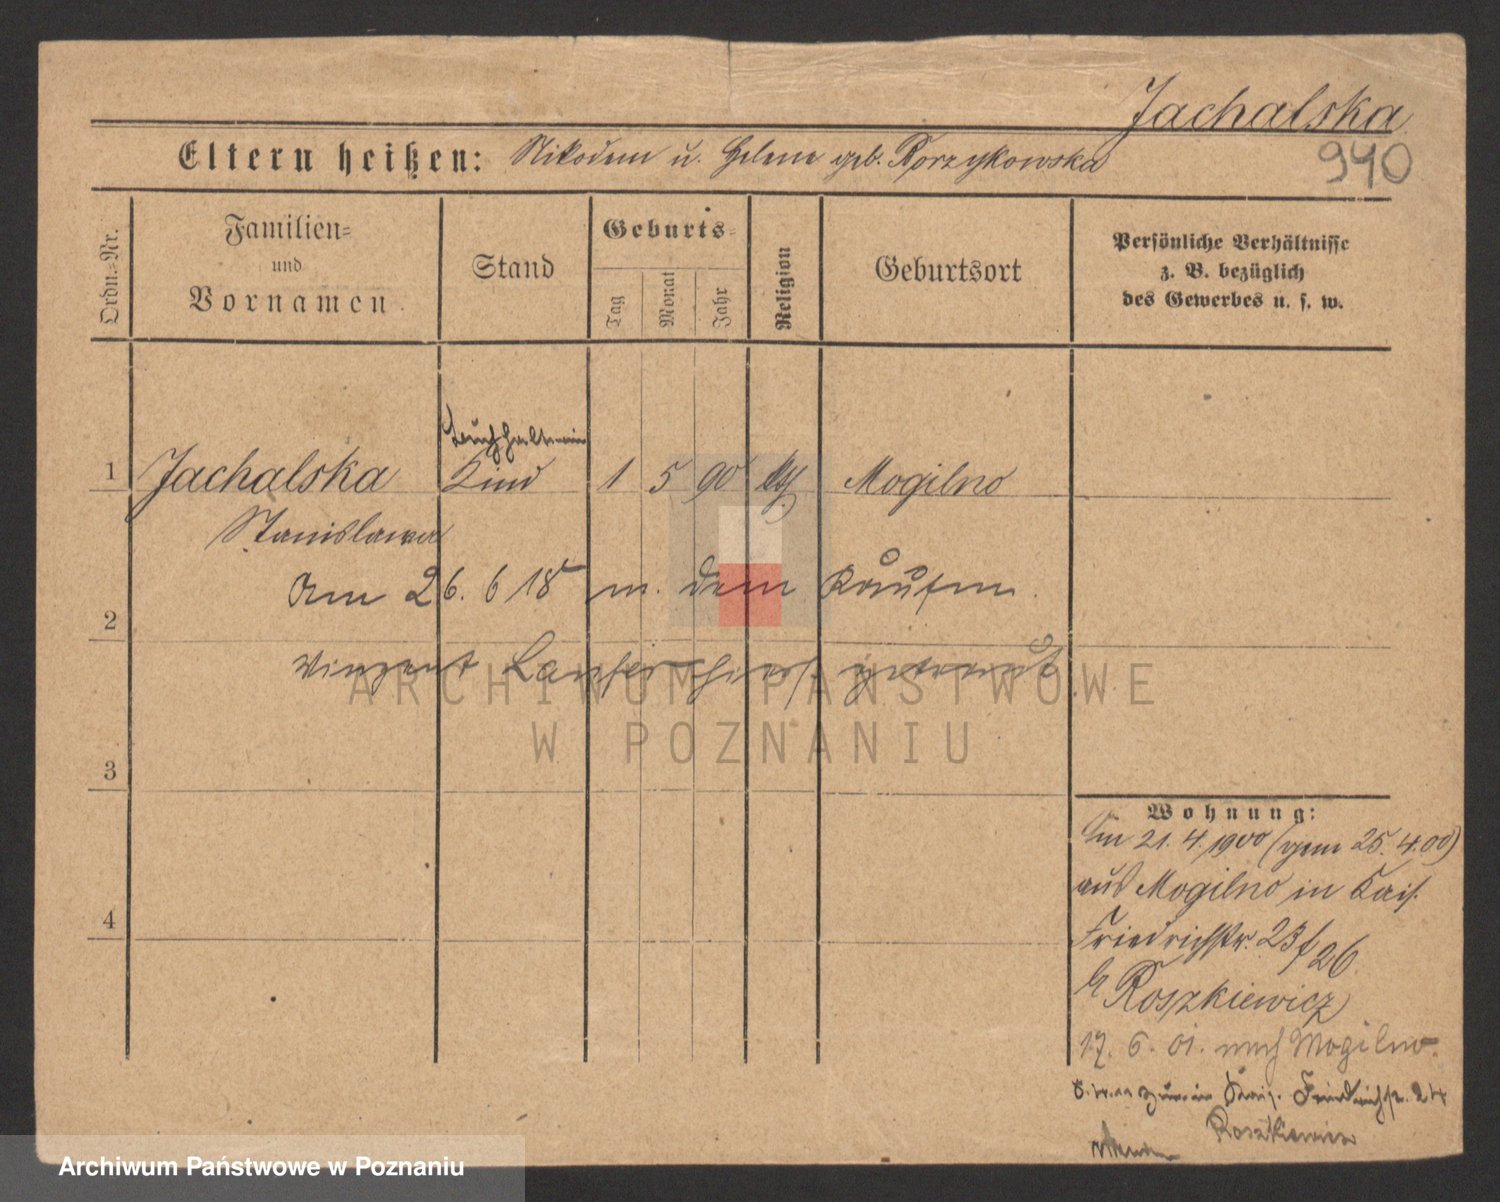 Jachalska
Eltern heißen: Nikodem u. Helene geb. Borzykowska
940
Ordn.-Nr.
Familien-
und
Vornamen.
Stand
Geburts-
Tag
Monat
Jahr
Religion
Geburtsort
Persönliche Verhältnisse
z. B. bezüglich
des Gewerbes u. s. w.
Buchhalterin
1 Jachalska Kind 1 5 90 kth Mogilno
Stanislawa
Am 26. 6 18 m. dem Kaufm.
2
Vinzent hier getraut
3
Wohnung:
Am 21. 4. 1900 (gem 25. 4. 00)
aus Mogilno in Kais.
4
Friedrichstr. 23/26
b Roszkiewicz
17. 6. 01. nach Mogilno.
in Kais. Friedrichstr. 24
Roszkiewicz
ARCHIWUM PAŃSTWOWE
W POZNANIU
Archiwum Państwowe w Poznaniu